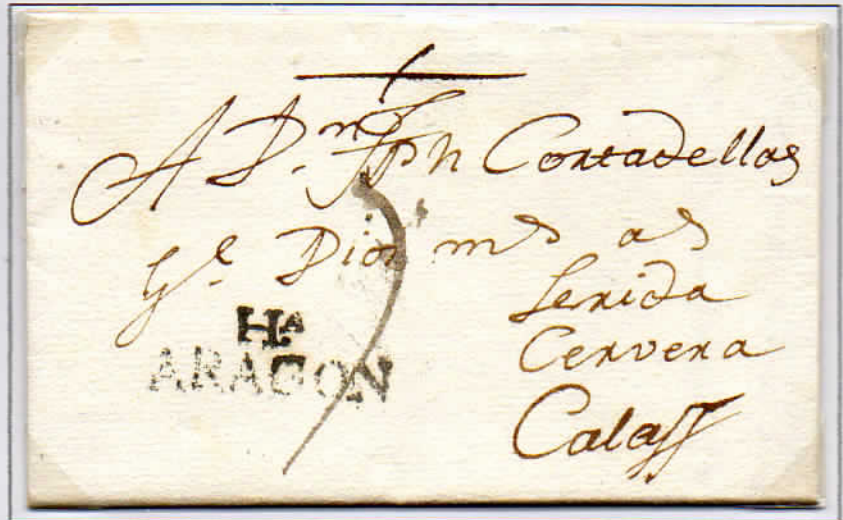 A D.n Jph Cortadellas
G.e Dios m.s a.s
Lerida
Cervera
Calaff
HA
ARAGON